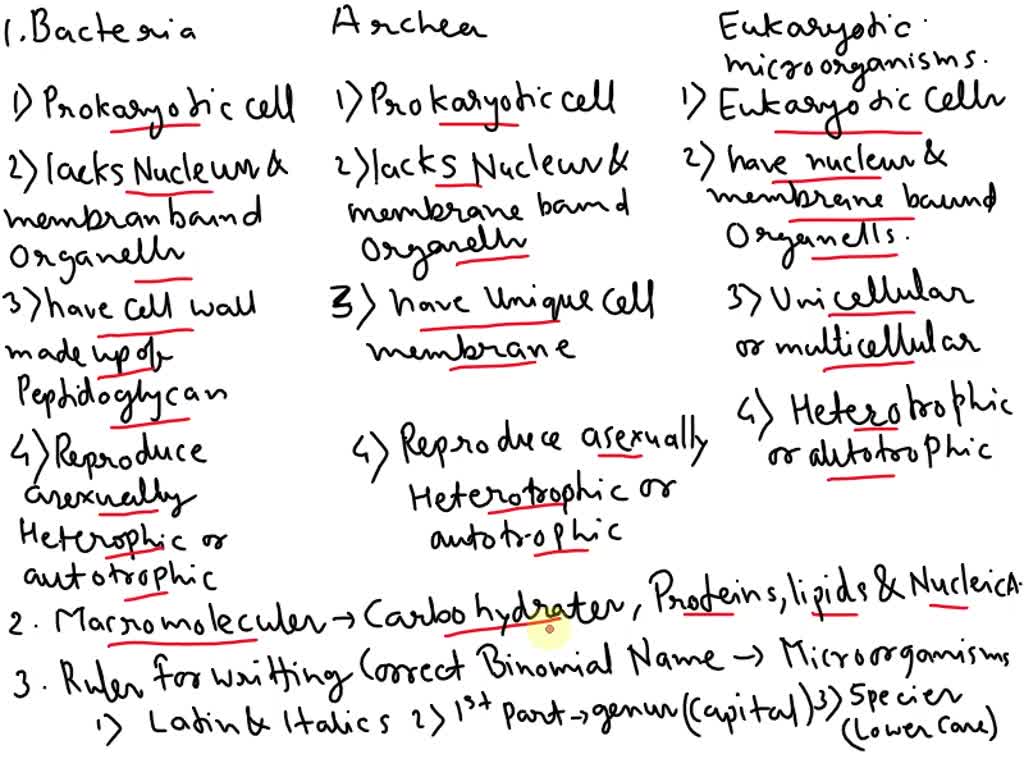 1. Bacteria
1) Prokaryotic cell
2) lacks Nucleus &
membran bound
Organells
3) have cell wall
made up of
Peptidoglycan
4) Reproduce
asexually
Heterophic or
autotrophic
Archea
1) Prokaryotic cell
2) lacks Nucleus &
membrane bound
Organells
3) have Unique cell
membrane
4) Reproduce asexually
Heterotrophic or
autotrophic
Eukaryotic
microorganisms.
1) Eukaryotic Cells
2) have nucleus &
membrane bound
Organells.
3) Unicellular
or multicellular
4) Heterotrophic
or autotrophic
2. Macromolecules → Carbohydrates, Proteins, lipids & Nucleic A.
3. Rules for writting Correct Binomial Name → Microorganisms
1) Latin & Italics 2) 1st Part → genus (Capital) 3) Species
(Lower Case)